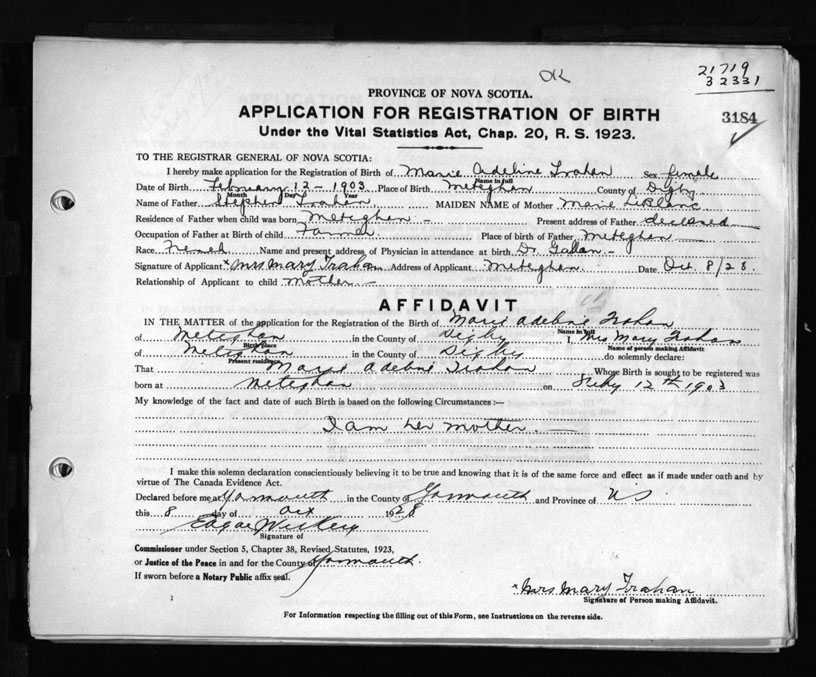 OK
21719
32331
3184
PROVINCE OF NOVA SCOTIA.
APPLICATION FOR REGISTRATION OF BIRTH
Under the Vital Statistics Act, Chap. 20, R. S. 1923.
TO THE REGISTRAR GENERAL OF NOVA SCOTIA:
I hereby make application for the Registration of Birth of Marie Adeline Trahan Sex female
Name in full
Date of Birth February 12 - 1903 Place of Birth Meteghan County of Digby
Month Day Year
Name of Father Stephen Trahan MAIDEN NAME of Mother Marie LeBlanc
Residence of Father when child was born Meteghan - Present address of Father deceased
Occupation of Father at Birth of child Farmer Place of birth of Father Meteghan
Race French Name and present address of Physician in attendance at birth Dr.
Signature of Applicant x Mrs Mary Trahan Address of Applicant Meteghan. Date Oct 8/28.
Relationship of Applicant to child Mother
AFFIDAVIT
IN THE MATTER of the application for the Registration of the Birth of Marie Adeline Trahan
Name in full
of Meteghan in the County of Digby I, Mrs Mary Trahan
Birth place Name of person making Affidavit
of Meteghan in the County of Digby do solemnly declare:
Present residence
That Marie Adeline Trahan Whose Birth is sought to be registered was
born at Meteghan on Feby 12th 1903
My knowledge of the fact and date of such Birth is based on the following Circumstances :—
I am her mother.
I make this solemn declaration conscientiously believing it to be true and knowing that it is of the same force and effect as if made under oath and by
virtue of The Canada Evidence Act.
Declared before me at Yarmouth in the County of Yarmouth and Province of N.S
this 8 day of Oct 1928
Edgar
Signature of
Commissioner under Section 5, Chapter 38, Revised Statutes, 1923,
or Justice of the Peace in and for the County of Yarmouth.
If sworn before a Notary Public affix seal.
x Mrs Mary Trahan
Signature of Person making Affidavit.
For Information respecting the filling out of this Form, see Instructions on the reverse side.